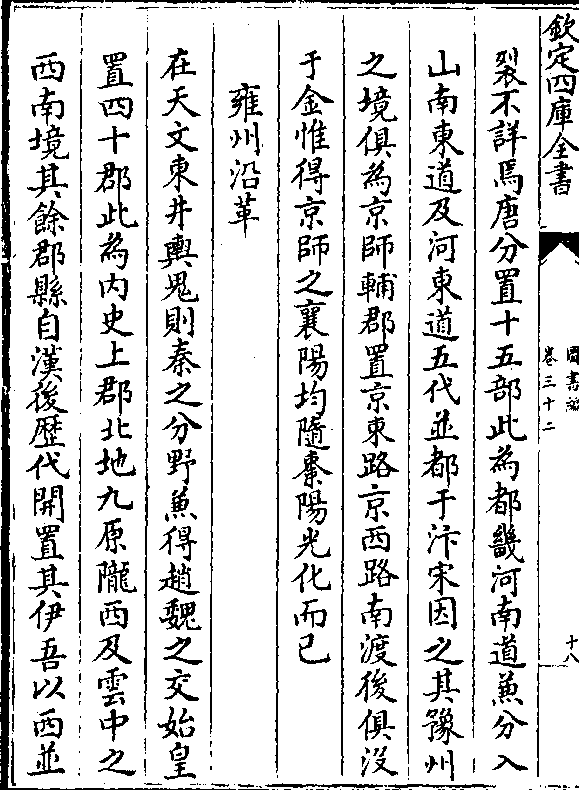 欽定四庫全書
圖書編
卷三十二
十八
裂不詳焉唐分置十五部此為都畿河南道兼分入
山南東道及河東道五代並都于汴宋因之其豫州
之境俱為京師輔郡置京東路京西路南渡後俱沒
于金惟得京師之襄陽均隨棗陽光化而已
雍州沿革
在天文東井輿鬼則秦之分野兼得趙魏之交始皇
置四十郡此為内史上郡北地九原隴西及雲中之
西南境其餘郡縣自漢後歴代開置其伊吾以西並